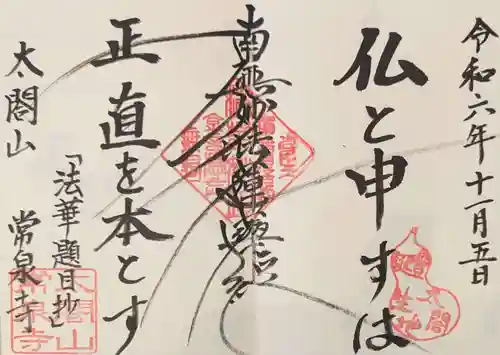 令和六年十一月五日
仏と申すは
南無妙法蓮華経
正直を本とす
「法華題目抄」
太閤山
常泉寺
太閤
生地
太閤山
常泉寺